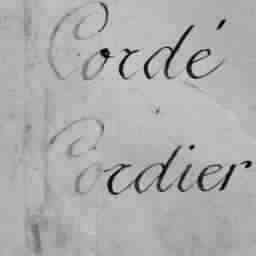 Cordé
Cordier